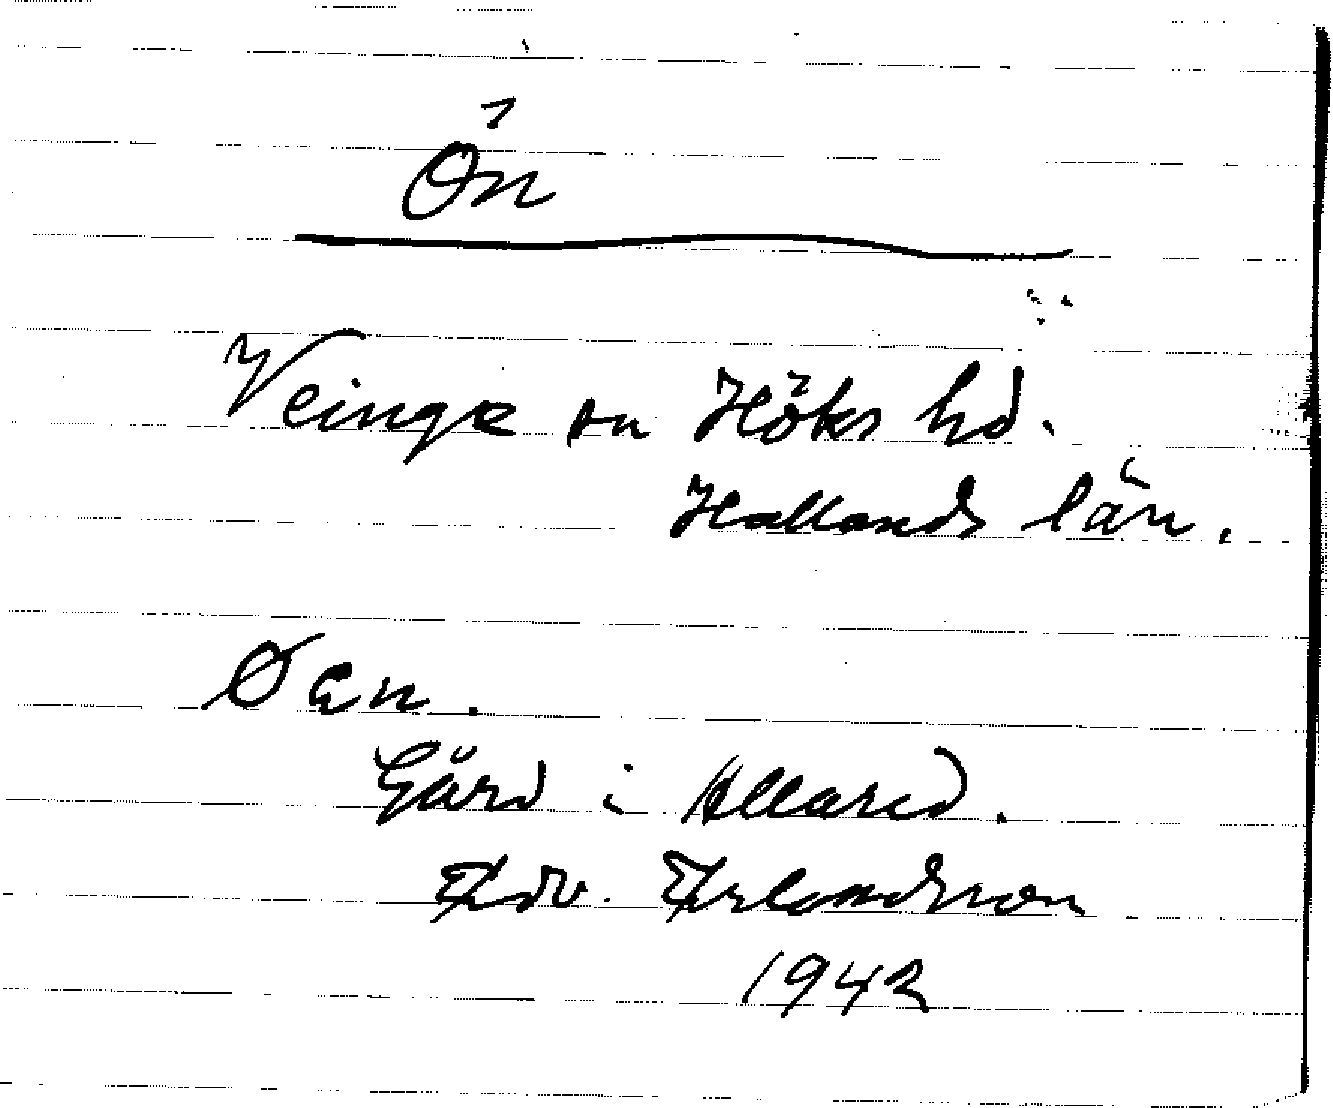 Ön
Veinge sn Höks hd.
Hallands län.
Øen.
Gård i Allared.
Edv. Erlandsson
1942